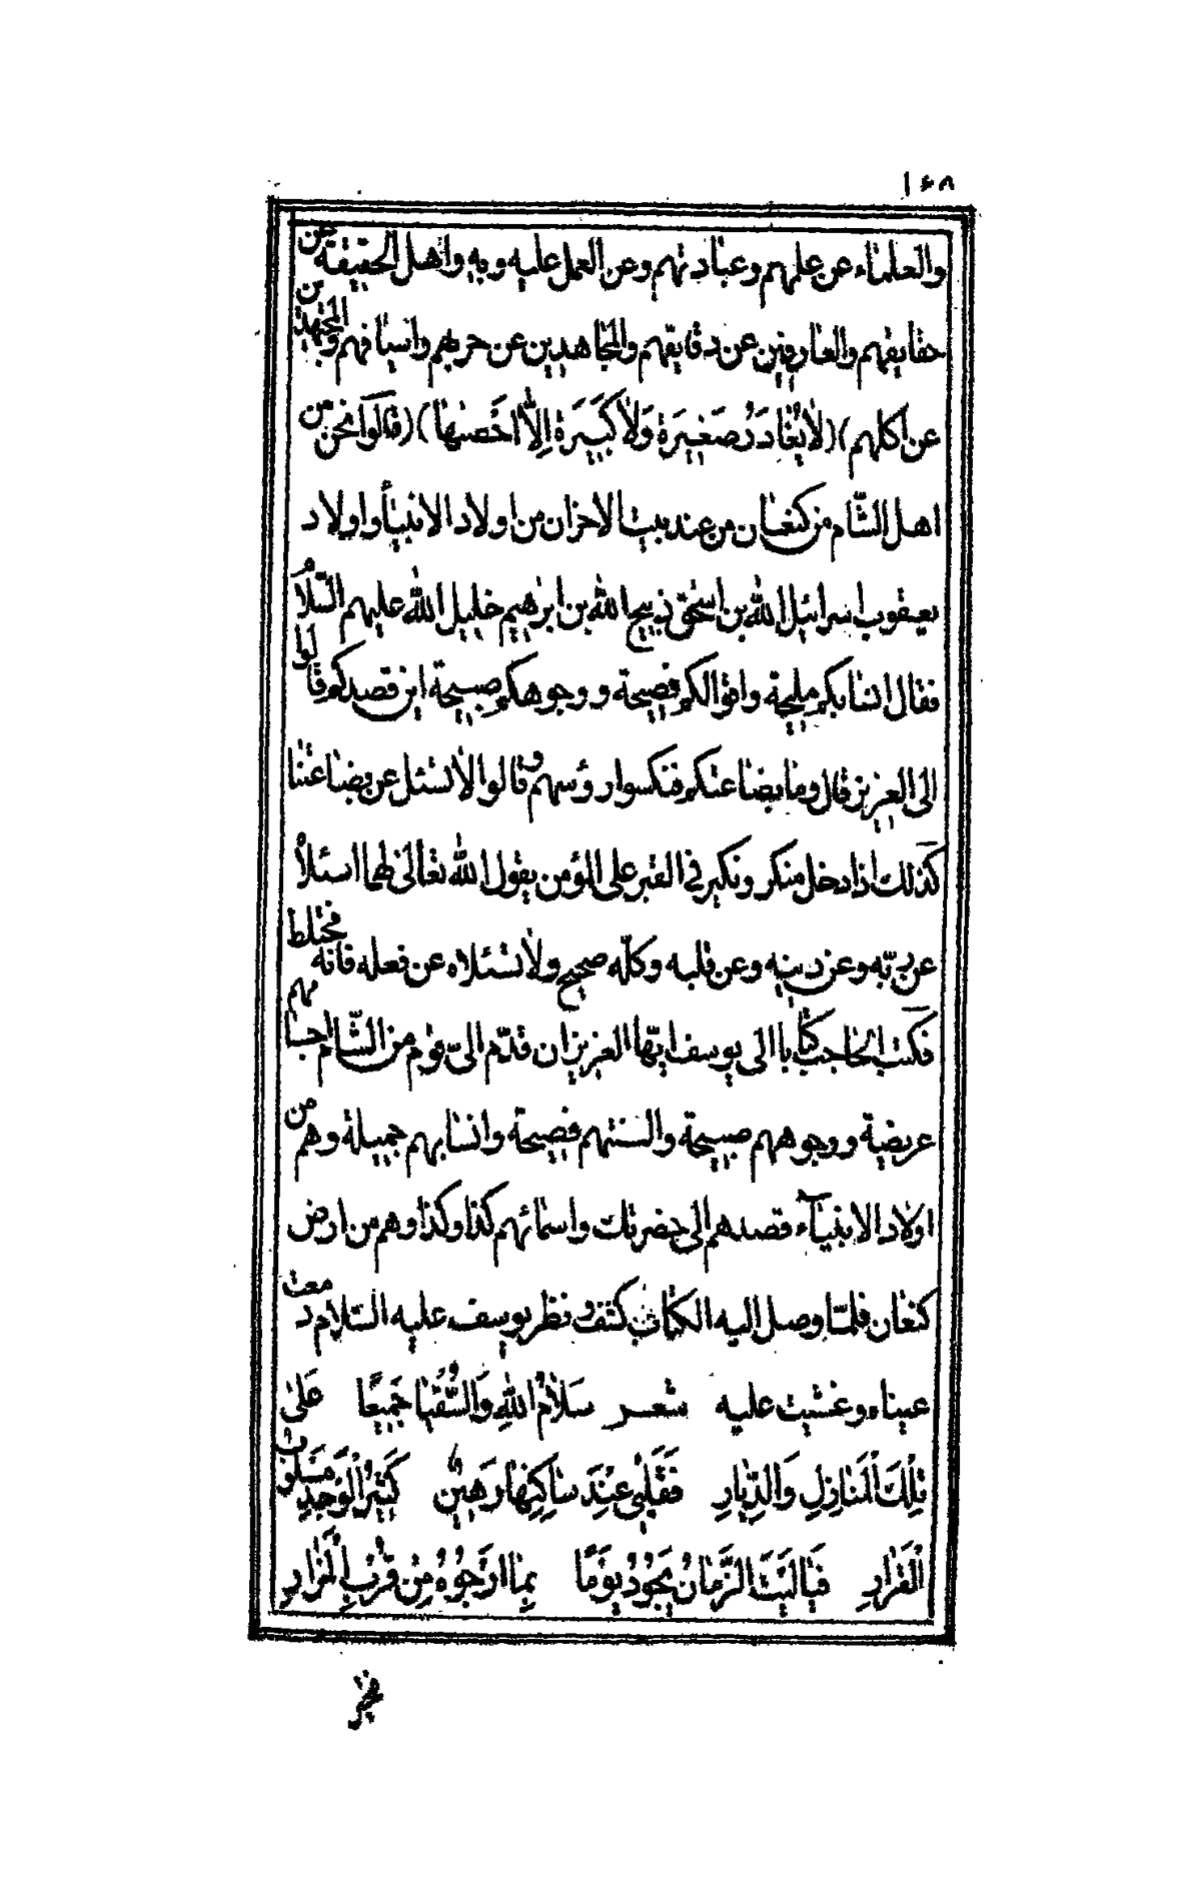 ١٤٨
والعلماء عن علمهم وعبادتهم وعن العمل عليه وبه واهل الحقيقة عن
حقايقهم والعارفين عن دقايقهم والمجاهدين عن حربهم واسيافهم والمجتهدين
عن اكلهم) (لَا يُغَادِرُ صَغِيرَةً وَلَا كَبِيرَةً اِلَّا اَحْصٰيهَا) (قَالُوٓا نحن من
اهل الشّام من كنعان من عند بيت الاحزان من اولاد الانبيآ واولاد
يعقوب اسرائيل الله بن اسحٰق ذبيح الله بن ابرٰهيم خليل الله عليهم السّلام
فقال انسابكم مليحة واقوالكم فصيحة ووجوهكم صبيحة اين قصدكم قالوا
الى العزيز قال وما بضاعتكم فنكسوا رؤسهم وقالوا لا تسئل عن بضاعتنا
كذلك اذا دخل منكر ونكير فى القبر على المؤمن يقول الله تعالى لهما اسئلا
عن ربّه وعن دينه وعن قلبه وكلّه صحيح ولا تسئلاه عن فعله فانه مختلط
فكتب الحاجب كتابا الى يوسف ايّها العزيز ان قدّم الىّ قوم من الشّام اجسامهم
عريضة ووجوههم صبيحة والسنتهم فصيحة وانسابهم جميلة وهم من
اولاد الانبيآء قصدهم الى حضرتك واسمائهم كذا وكذا وهم من ارض
كنعان فلمّا وصل اليه الكتاب كشف ونظر يوسف عليه السّلام دمعت
عيناه وغشيت عليه شعر سَلَامُ اللهِ وَالسُّقْيَا جَمِيعًا عَلَىٰ
تِلْكَ الْمَنَازِلِ وَالدِّيَارِ فَقَلْبِى عِنْدَ سَاكِنِهَا رَهِينٌ كَثِيرُ الْوَجْدِ مَسْلُوبُ
الْقَرَارِ فَيَا لَيْتَ الزَّمَانُ يَجُودُ يَوْمًا بِمَا ارْجُوهُ مِنْ قُرْبِ الْمَزَارِ